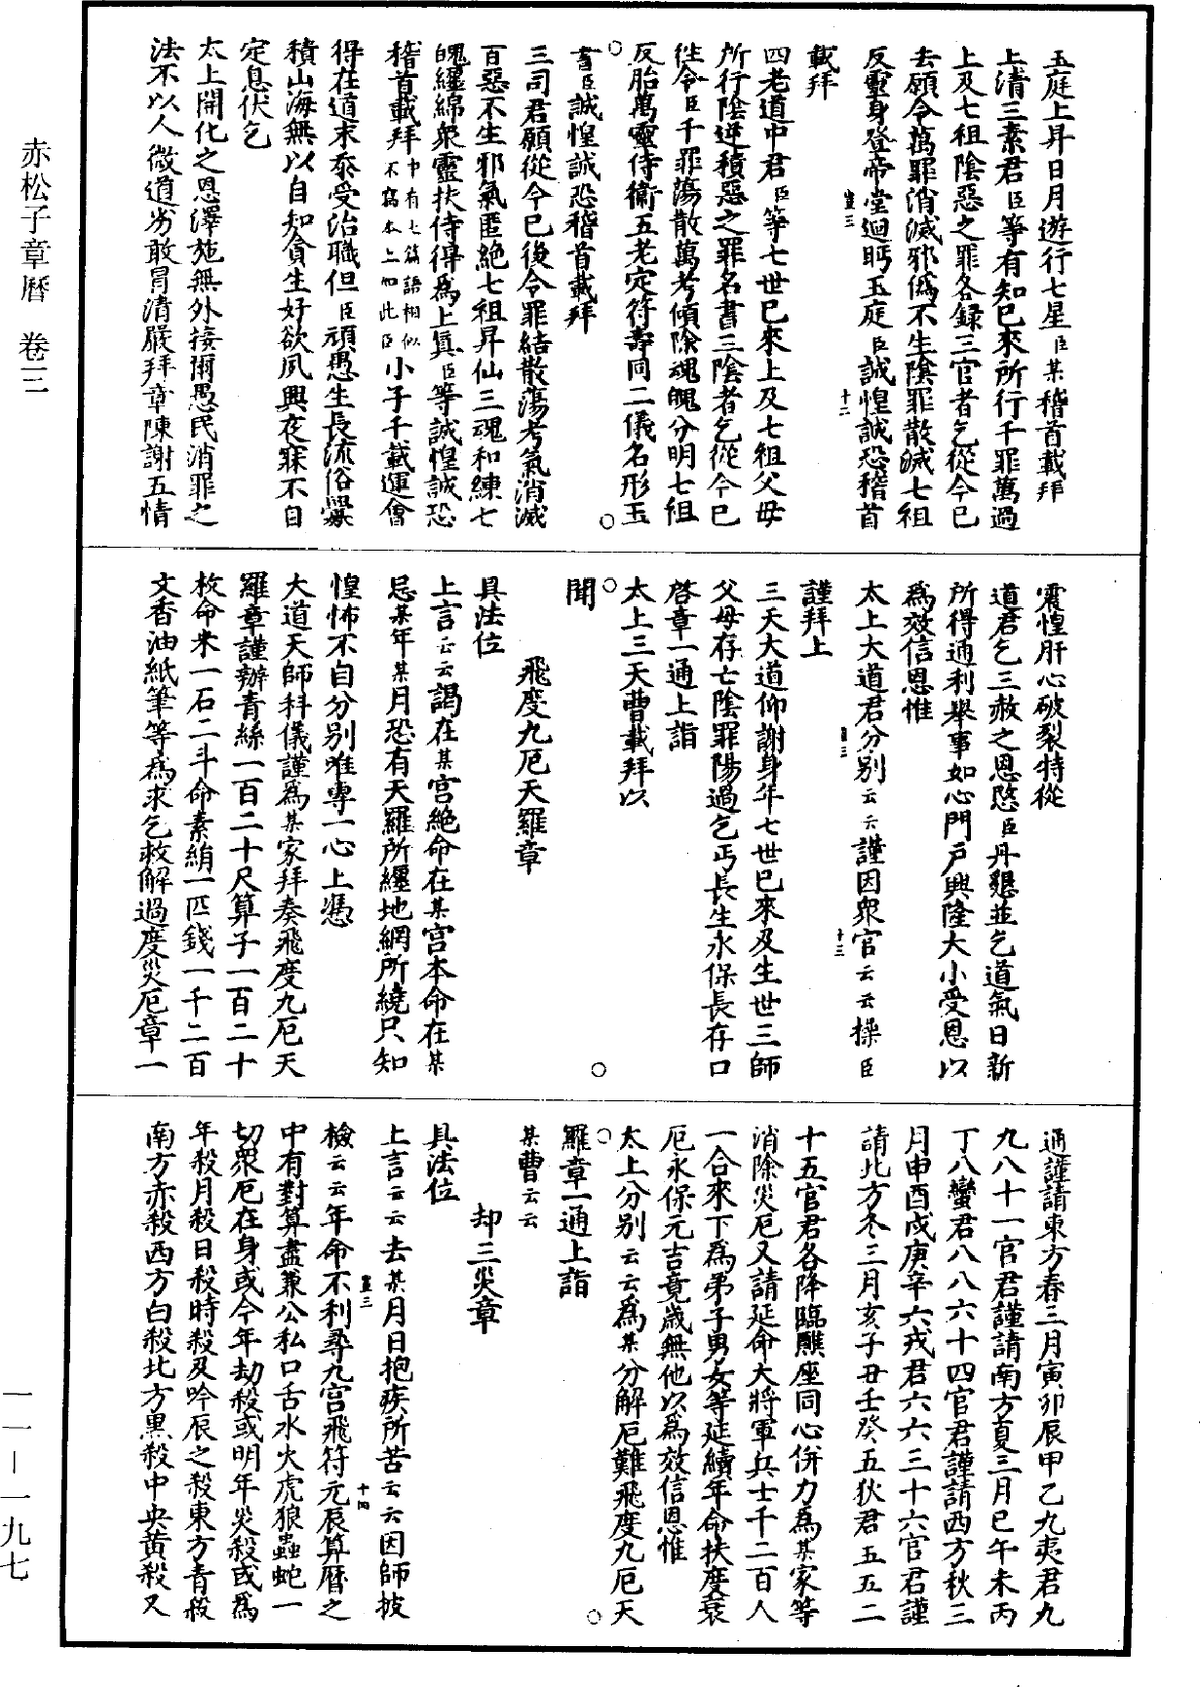 玉庭上昇日月遊行七星臣某稽首載拜
上清三素君臣等有知已來所行千罪萬過
上及七祖陰惡之罪名錄三官者乞從今已
去願令萬罪消滅邪偽不生陰罪散滅七祖
反靈身登帝堂迴眄玉庭臣誠惶誠恐稽首
載拜
四老道中君臣等七世已來上及七祖父母
所行陰逆積惡之罪名書三陰者乞從今已
徃令臣千罪蕩散萬考傾除魂魄分明七祖
反胎萬靈侍衛五老定符壽同二儀名形玉
書臣誠惶誠恐稽首載拜
三司君願從今已後令罪結散蕩考氣消滅
百惡不生邪氣匿絶七祖昇仙三魂和練七
魄纏綿衆靈扶侍得為上真臣等誠惶誠恐
稽首載拜中有七篇語相似不寫本上如此臣小子千載運會
得在道末忝受治職但臣頑愚生長流俗舋
積山海無以自知貪生好欲夙興夜寐不自
定息伏乞
太上開化之恩澤施無外接爾愚民消罪之
法不以人微道劣敢冒清嚴拜章陳謝五情
震惶肝心破裂特從
道君乞三赦之恩愍臣丹懇並乞道氣日新
所得通利舉事如心門戶興隆大小受恩以
為效信恩惟
太上大道君分別云云謹因衆官云云操臣
謹拜上
三天大道仰謝身年七世已來及生世三師
父母存亡陰罪陽過乞丐長生永保長存口
啓章一通上詣
太上三天曹載拜以
聞
飛度九厄天羅章
具法位
上言云云謁在某宮絶命在某宮本命在某
忌某年某月恐有天羅所纏地網所繞只知
惶怖不自分別唯專一心上憑
大道天師科儀謹為某家拜奏飛度九厄天
羅章謹辦青絲一百二十尺算子一百二十
枚命米一石二斗命素絹一匹錢一千二百
文香油紙筆等為求乞救解過度災厄章一
通謹請東方春三月寅卯辰甲乙九夷君九
九八十一官君謹請南方夏三月巳午未丙
丁八蠻君八八六十四官君謹請西方秋三
月申酉戌庚辛六戎君六六三十六官君謹
請北方冬三月亥子丑壬癸五狄君五五二
十五官君各降臨醮座同心併力為某家等
消除災厄又請延命大將軍兵士千二百人
一合來下為弟子男女等延續年命扶度衰
厄永保元吉竟歲無他以為效信恩惟
太上分別云云為某分解厄難飛度九厄天
羅章一通上詣
某曹云云
却三災章
具法位
上言云云去某月日抱疾所苦云云因師披
檢云云年命不利尋九宮飛符元辰算曆之
中有對算盡兼公私口舌水火虎狼蟲蛇一
切衆厄在身或今年劫殺或明年災殺或為
年殺月殺日殺時殺及吟辰之殺東方青殺
南方赤殺西方白殺北方黑殺中央黄殺又
赤松子章曆 卷三
一一－一九七